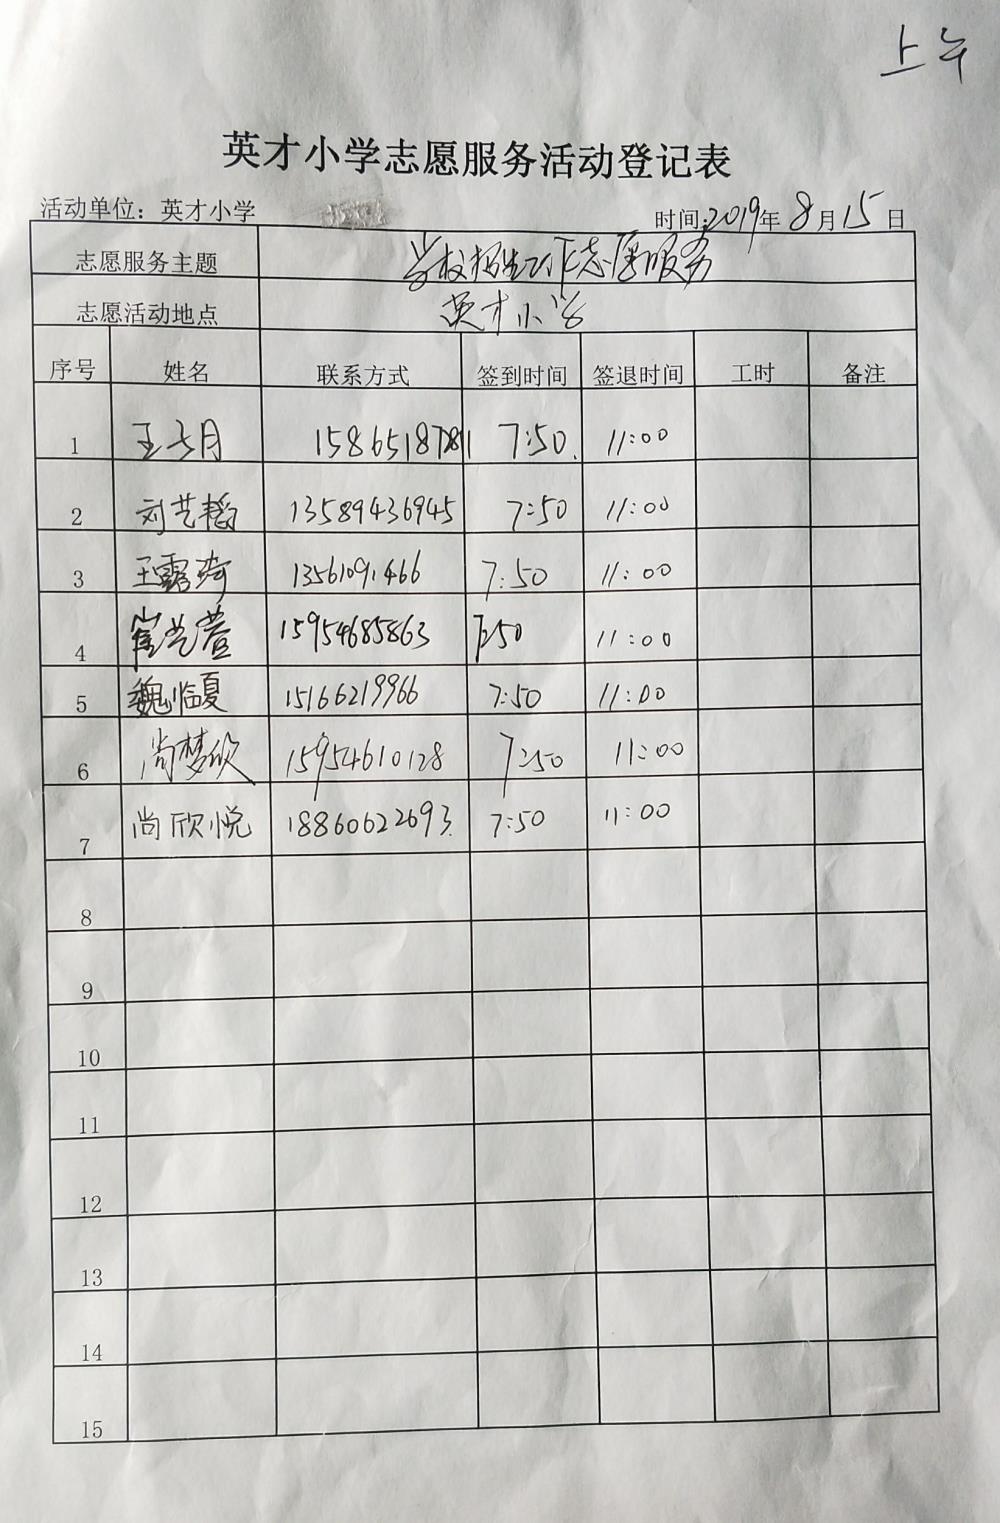 上午
英才小学志愿服务活动登记表
活动单位：英才小学 时间:2019年8月15日
志愿服务主题 学校招生工作志愿服务
志愿活动地点 英才小学
序号 姓名 联系方式 签到时间 签退时间 工时 备注
1 王 月 15865187811 7:50. 11:00
2 刘艺韬 13589436945 7:50 11:00
3 王露琦 13561091466 7:50 11:00
4 崔艺萱 15954685863 7:50 11:00
5 魏临夏 15166219966 7:50 11:00
6 尚梦欣 15954610128 7:50 11:00
7 尚欣悦 18860622693. 7:50 11:00
8
9
10
11
12
13
14
15